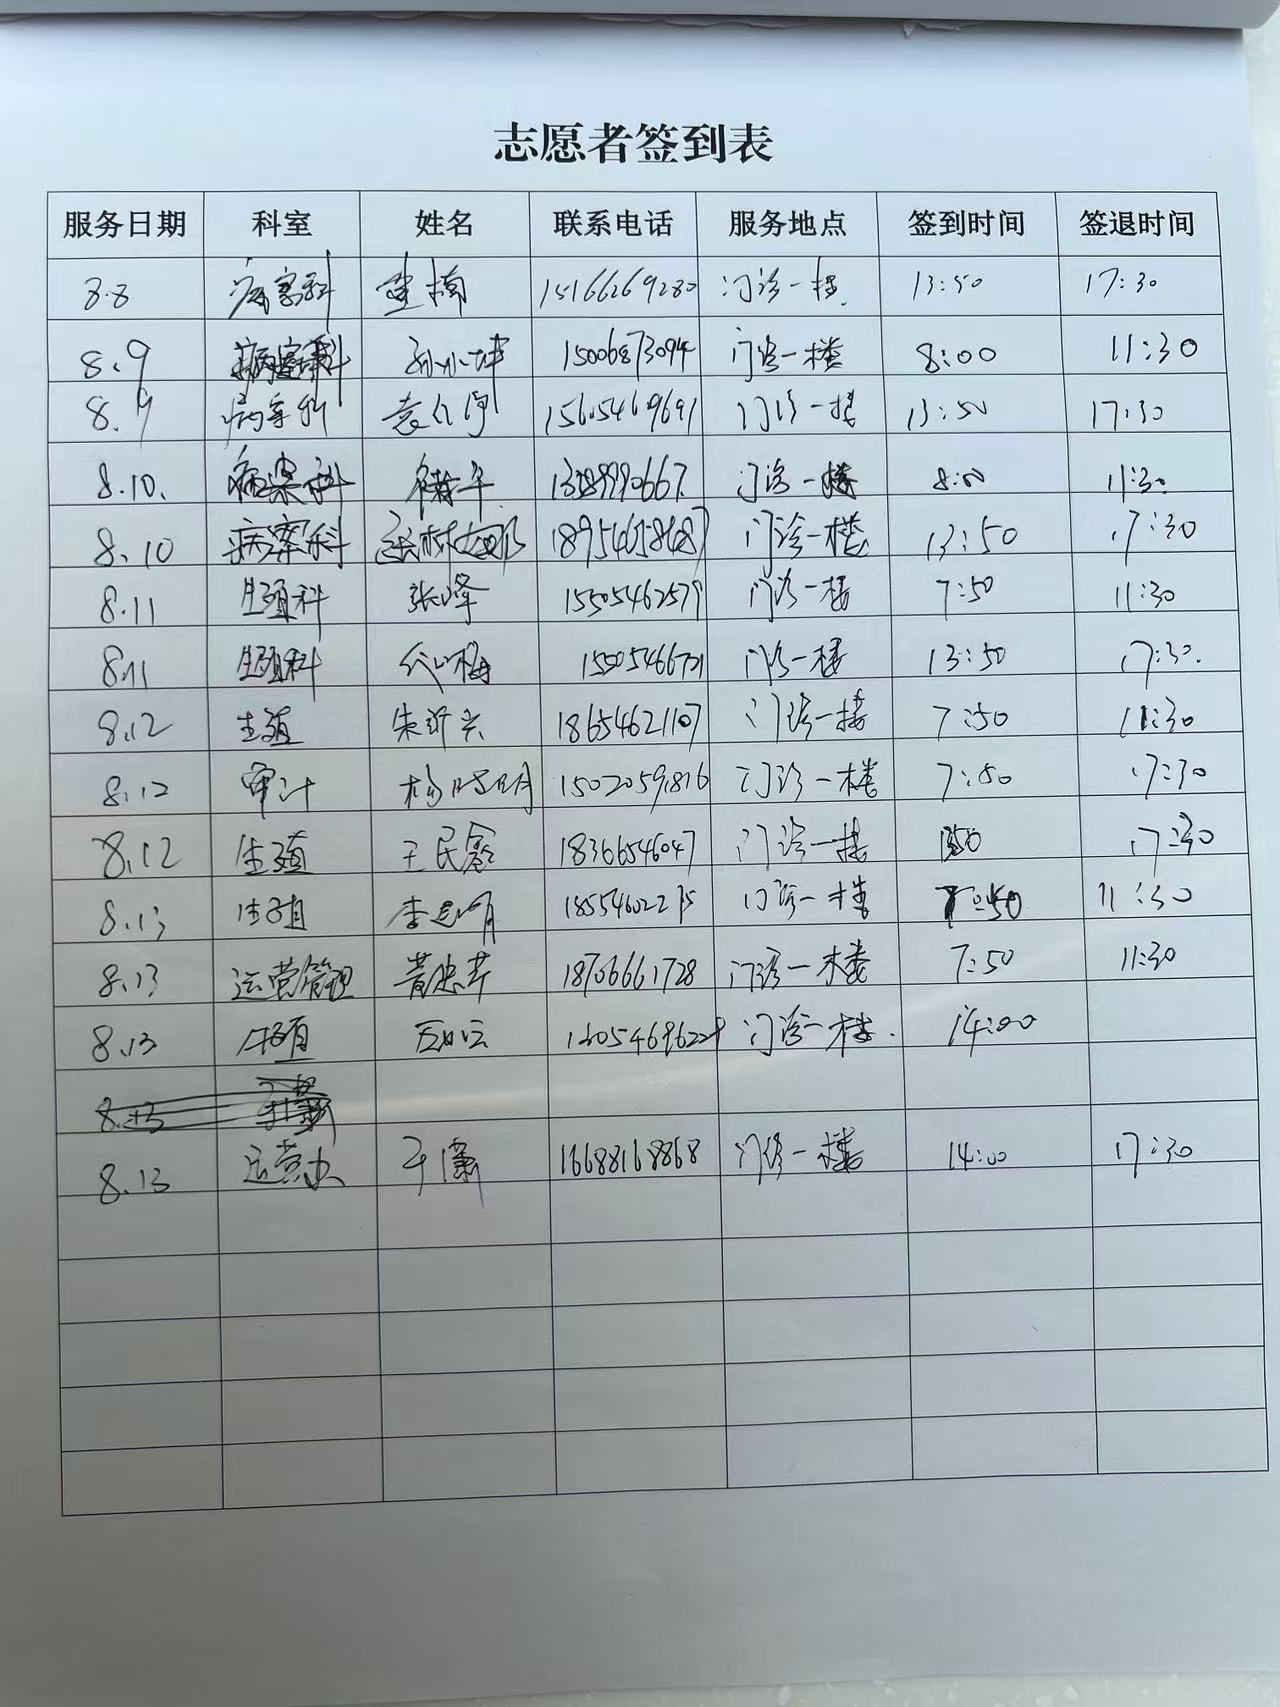 志愿者签到表
服务日期 科室 姓名 联系电话 服务地点 签到时间 签退时间
8.8 病案科 楠 15166269280 门诊一楼. 13:50 17:30
8.9 病案科 孙小坤 15006873094 门诊一楼 8:00 11:30
8.9 病案科 15605469691 门诊一楼 13:50 17:30
8.10. 病案科 门诊一楼 8:00 11:30
8.10 病案科 门诊一楼 13:50 17:30
8.11 生殖科 张峰 15505462579 门诊一楼 7:50 11:30
8.11 生殖科 门诊一楼 13:50 17:30.
8.12 生殖 朱沂云 18654621107 门诊一楼 7:50 11:30
8.12 审计 杨晓明 15020591816 门诊一楼 7:50 17:30
8.12 生殖 王民鑫 18366546047 门诊一楼 17:30
8.13 生殖 李 门诊一楼 7:50 11:30
8.13 运营管理 黄忠芹 18706661728 门诊一楼 7:50 11:30
8.13 生殖 门诊一楼. 14:00
8.13
8.13 运营办 于潇 16688168868 门诊一楼 14:00 17:30